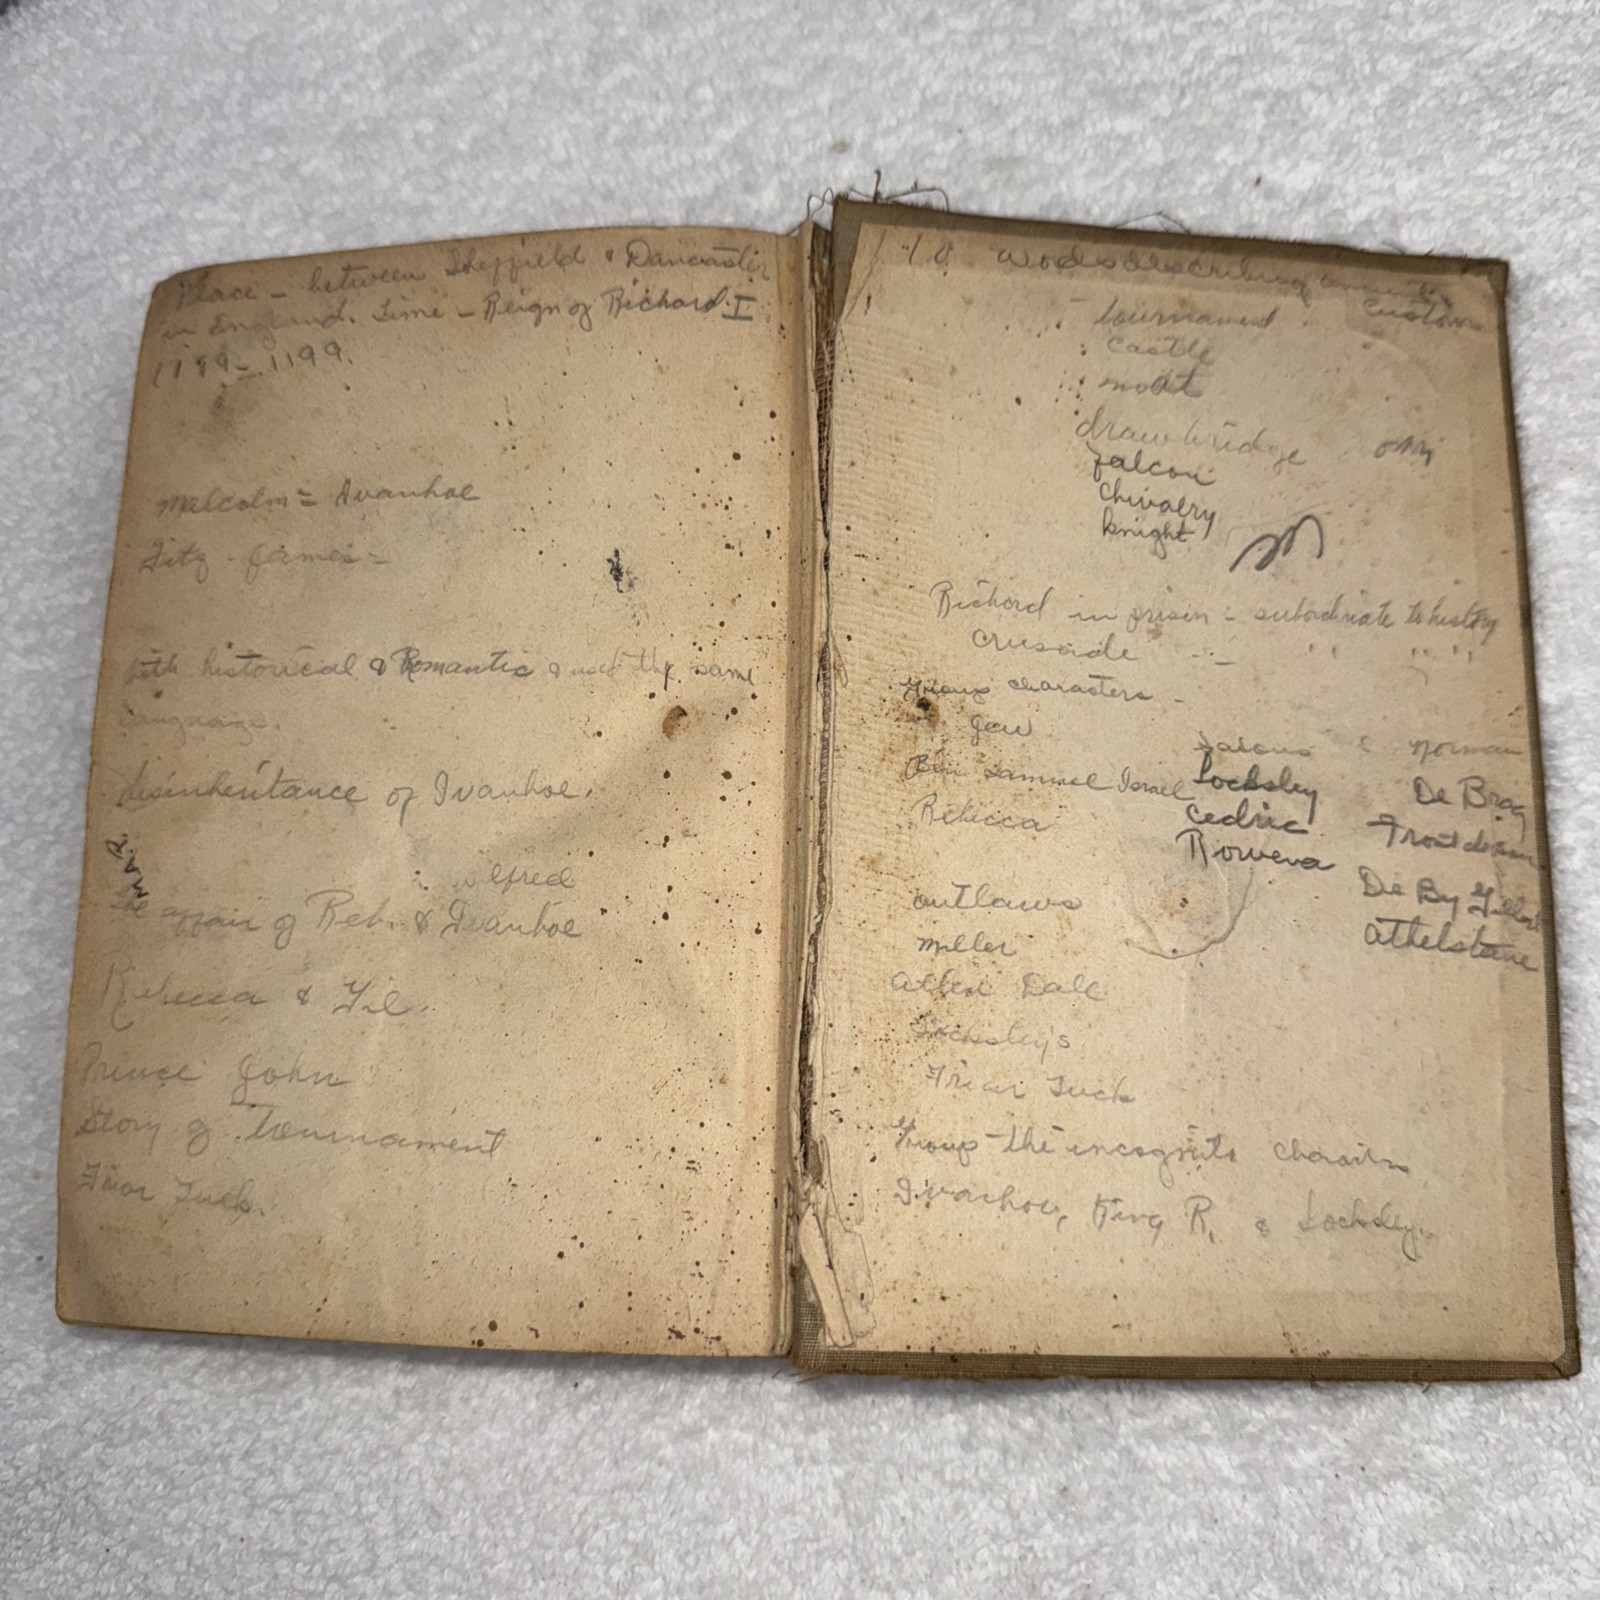 Place - between Sheffield & Dancaster
in England. Time - Reign of Richard I
1189-1199.
Malcolm = Ivanhoe
Fitz-James =
both historical & Romantic & used the same
language.
disinheritance of Ivanhoe.
Wilfred
The affair of Reb. & Ivanhoe
Rebecca & Gil.
Prince John
Story of Tournament
Friar Tuck.
10 words describing
Custom
tournament
castle
moat
drawbridge
falcon
chivalry
knight
M
Richard in prison - subordinate to history
Crusade - " " "
Group characters -
Jew
Ben Sammuel Israel
Rebecca
Saxons & Norman
Locksley
Cedric
Rowena
De Bracy
De By Gilbert
Athelstane
outlaws
Miller
Allen Dale
Locksley's
Friar Tuck
Group the incognito
Ivanhoe, King R. & Locksley.